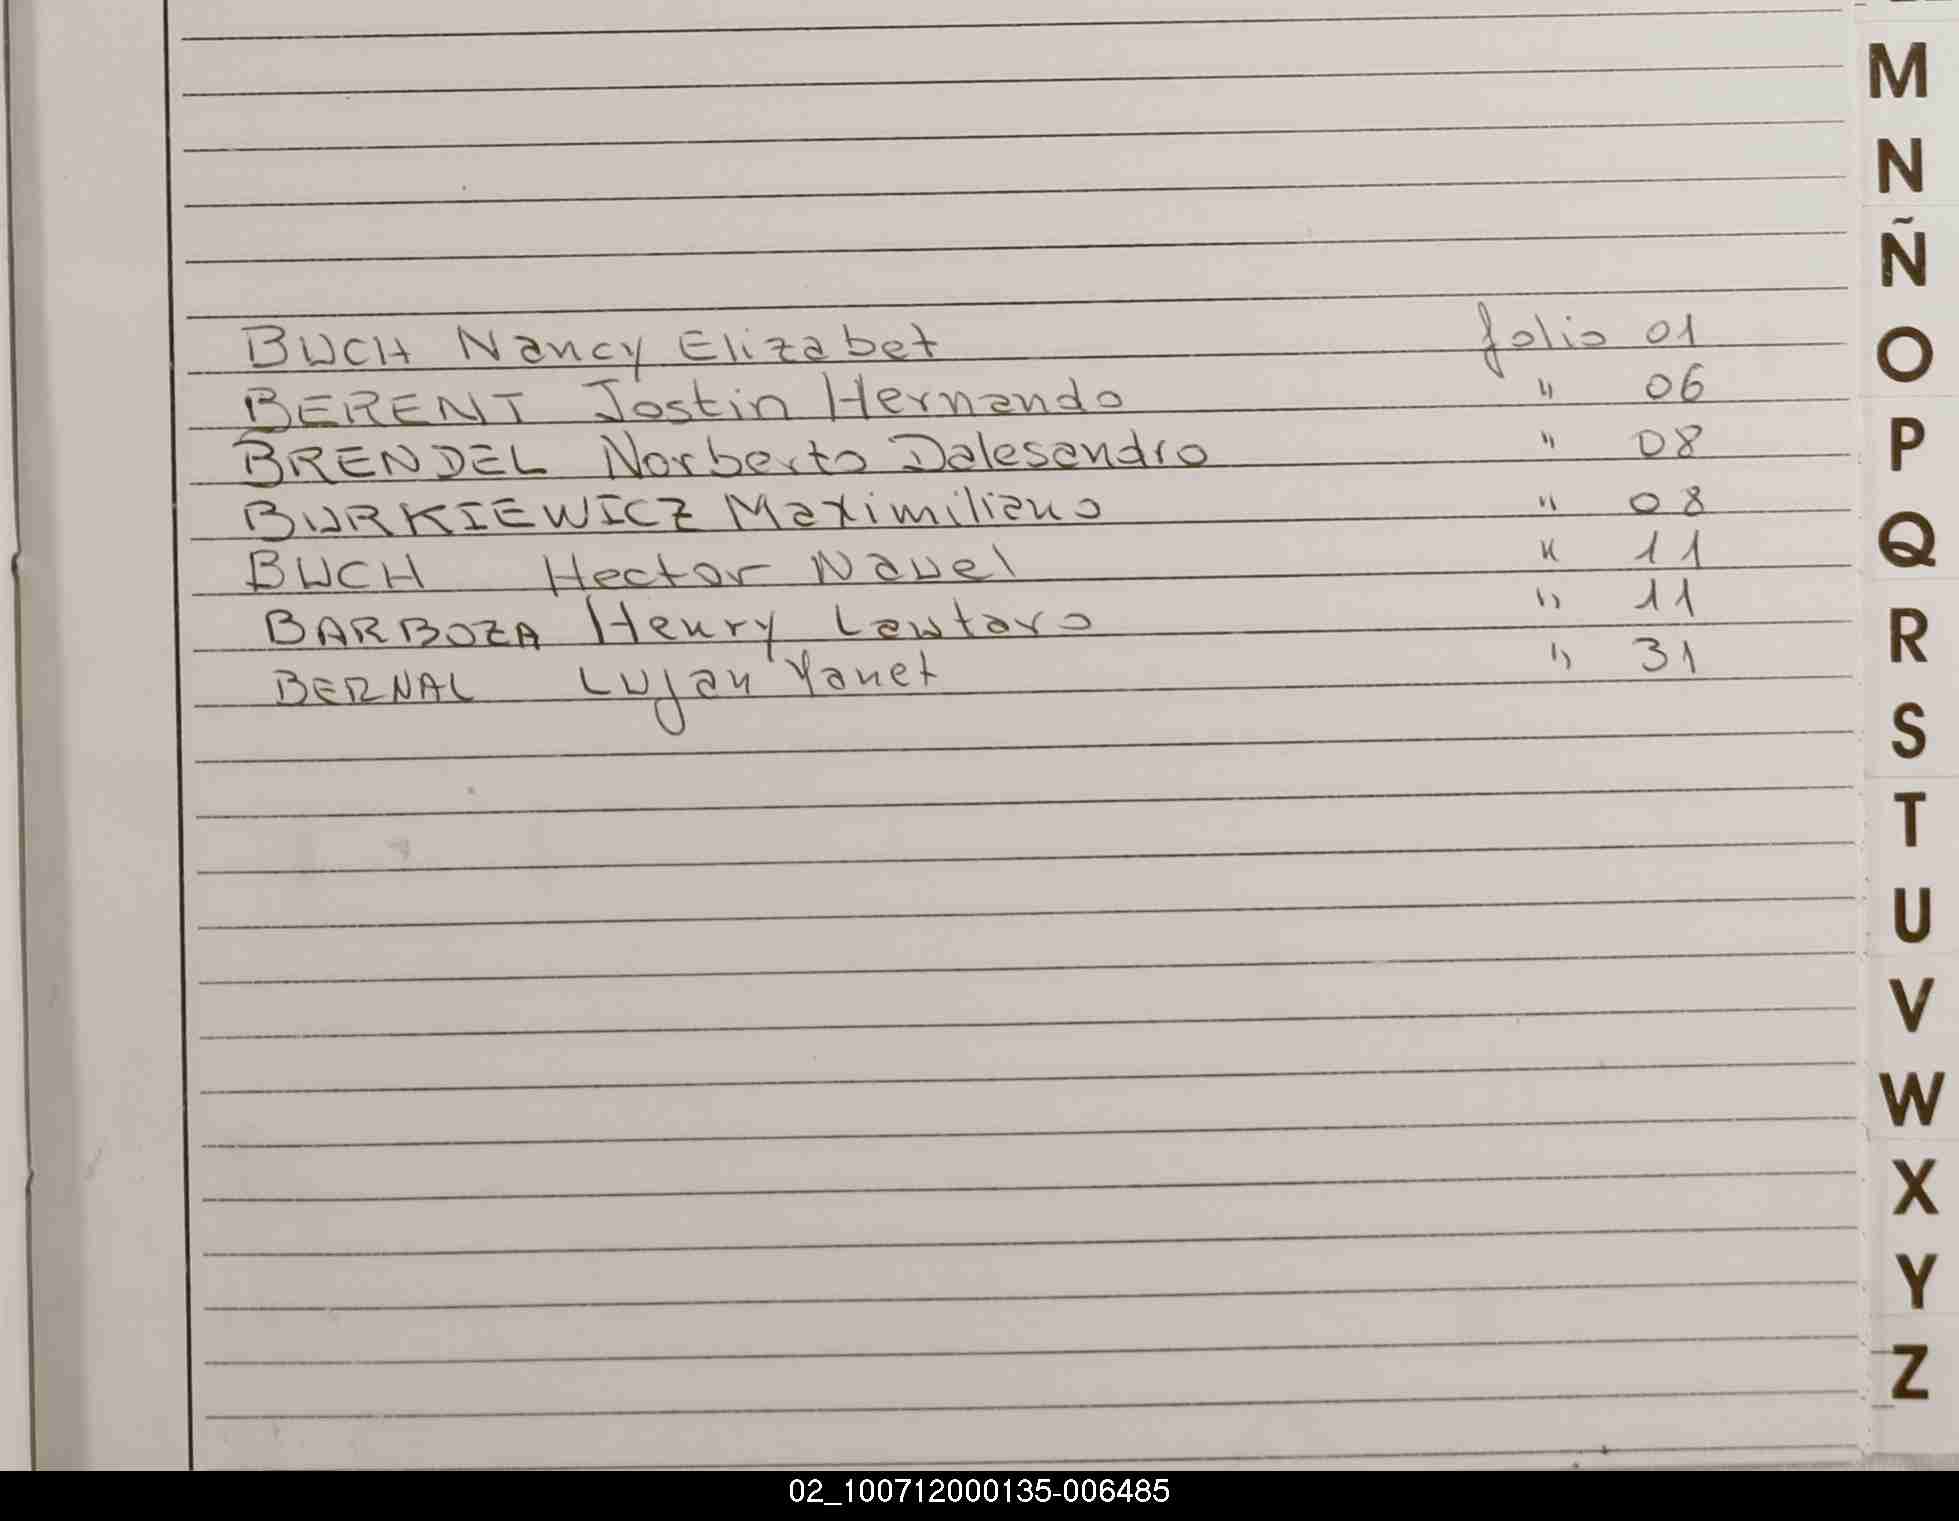 BUCH Nancy Elizabet folio 01
BERENT Jostin Hernando " 06
BRENDEL Norberto Dalesandro " 08
BURKIEWICZ Maximiliano " 08
BUCH Hector Nauel " 11
BARBOZA Henry Lautaro " 11
BERNAL Lujan Yanet " 31
M
N
Ñ
O
P
Q
R
S
T
U
V
W
X
Y
Z
02_100712000135-006485